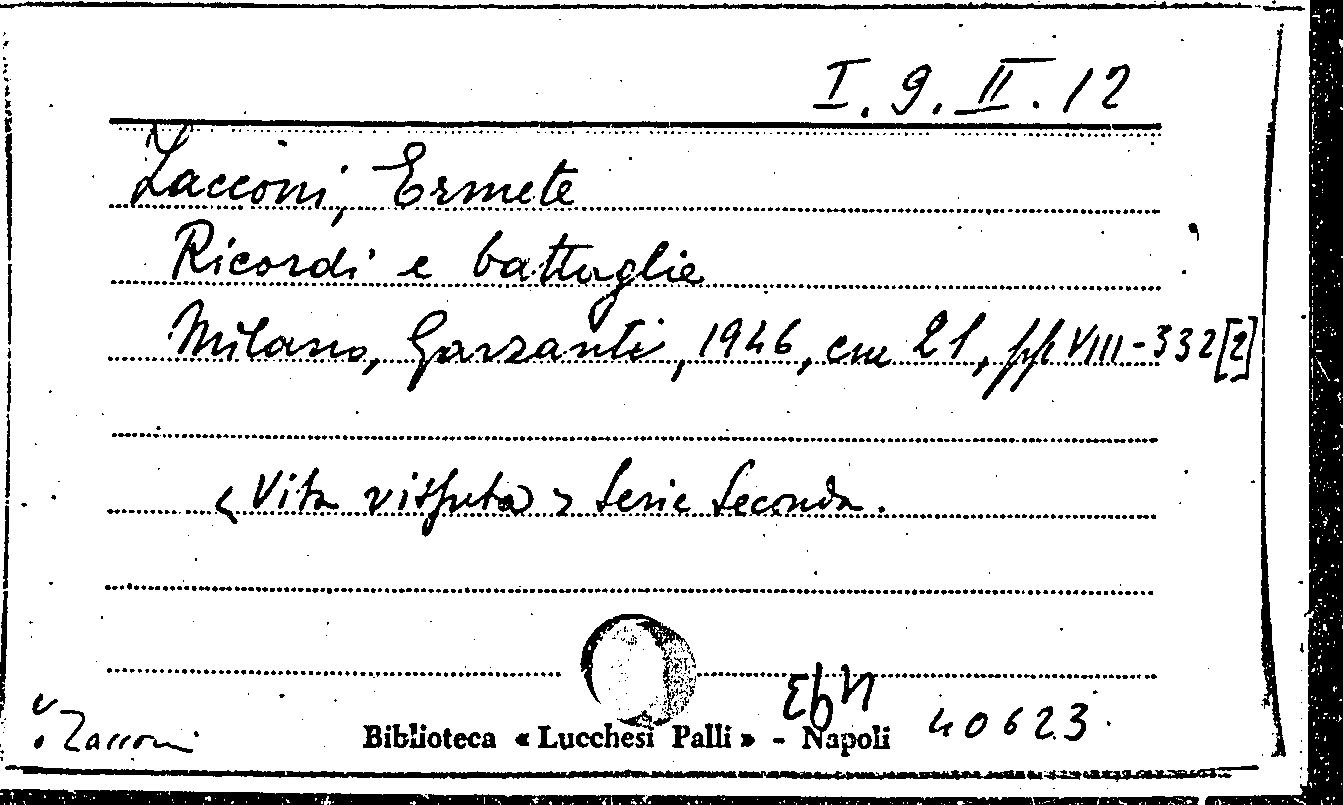 I. 9. II. 12
Zacconi, Ermete
Ricordi e battaglie
Milano, Garzanti, 1946, cm 21, pp VIII-332[2]
< Vita vissuta > Serie Seconda.
Zacconi
Biblioteca « Lucchesi Palli » - Napoli 40623